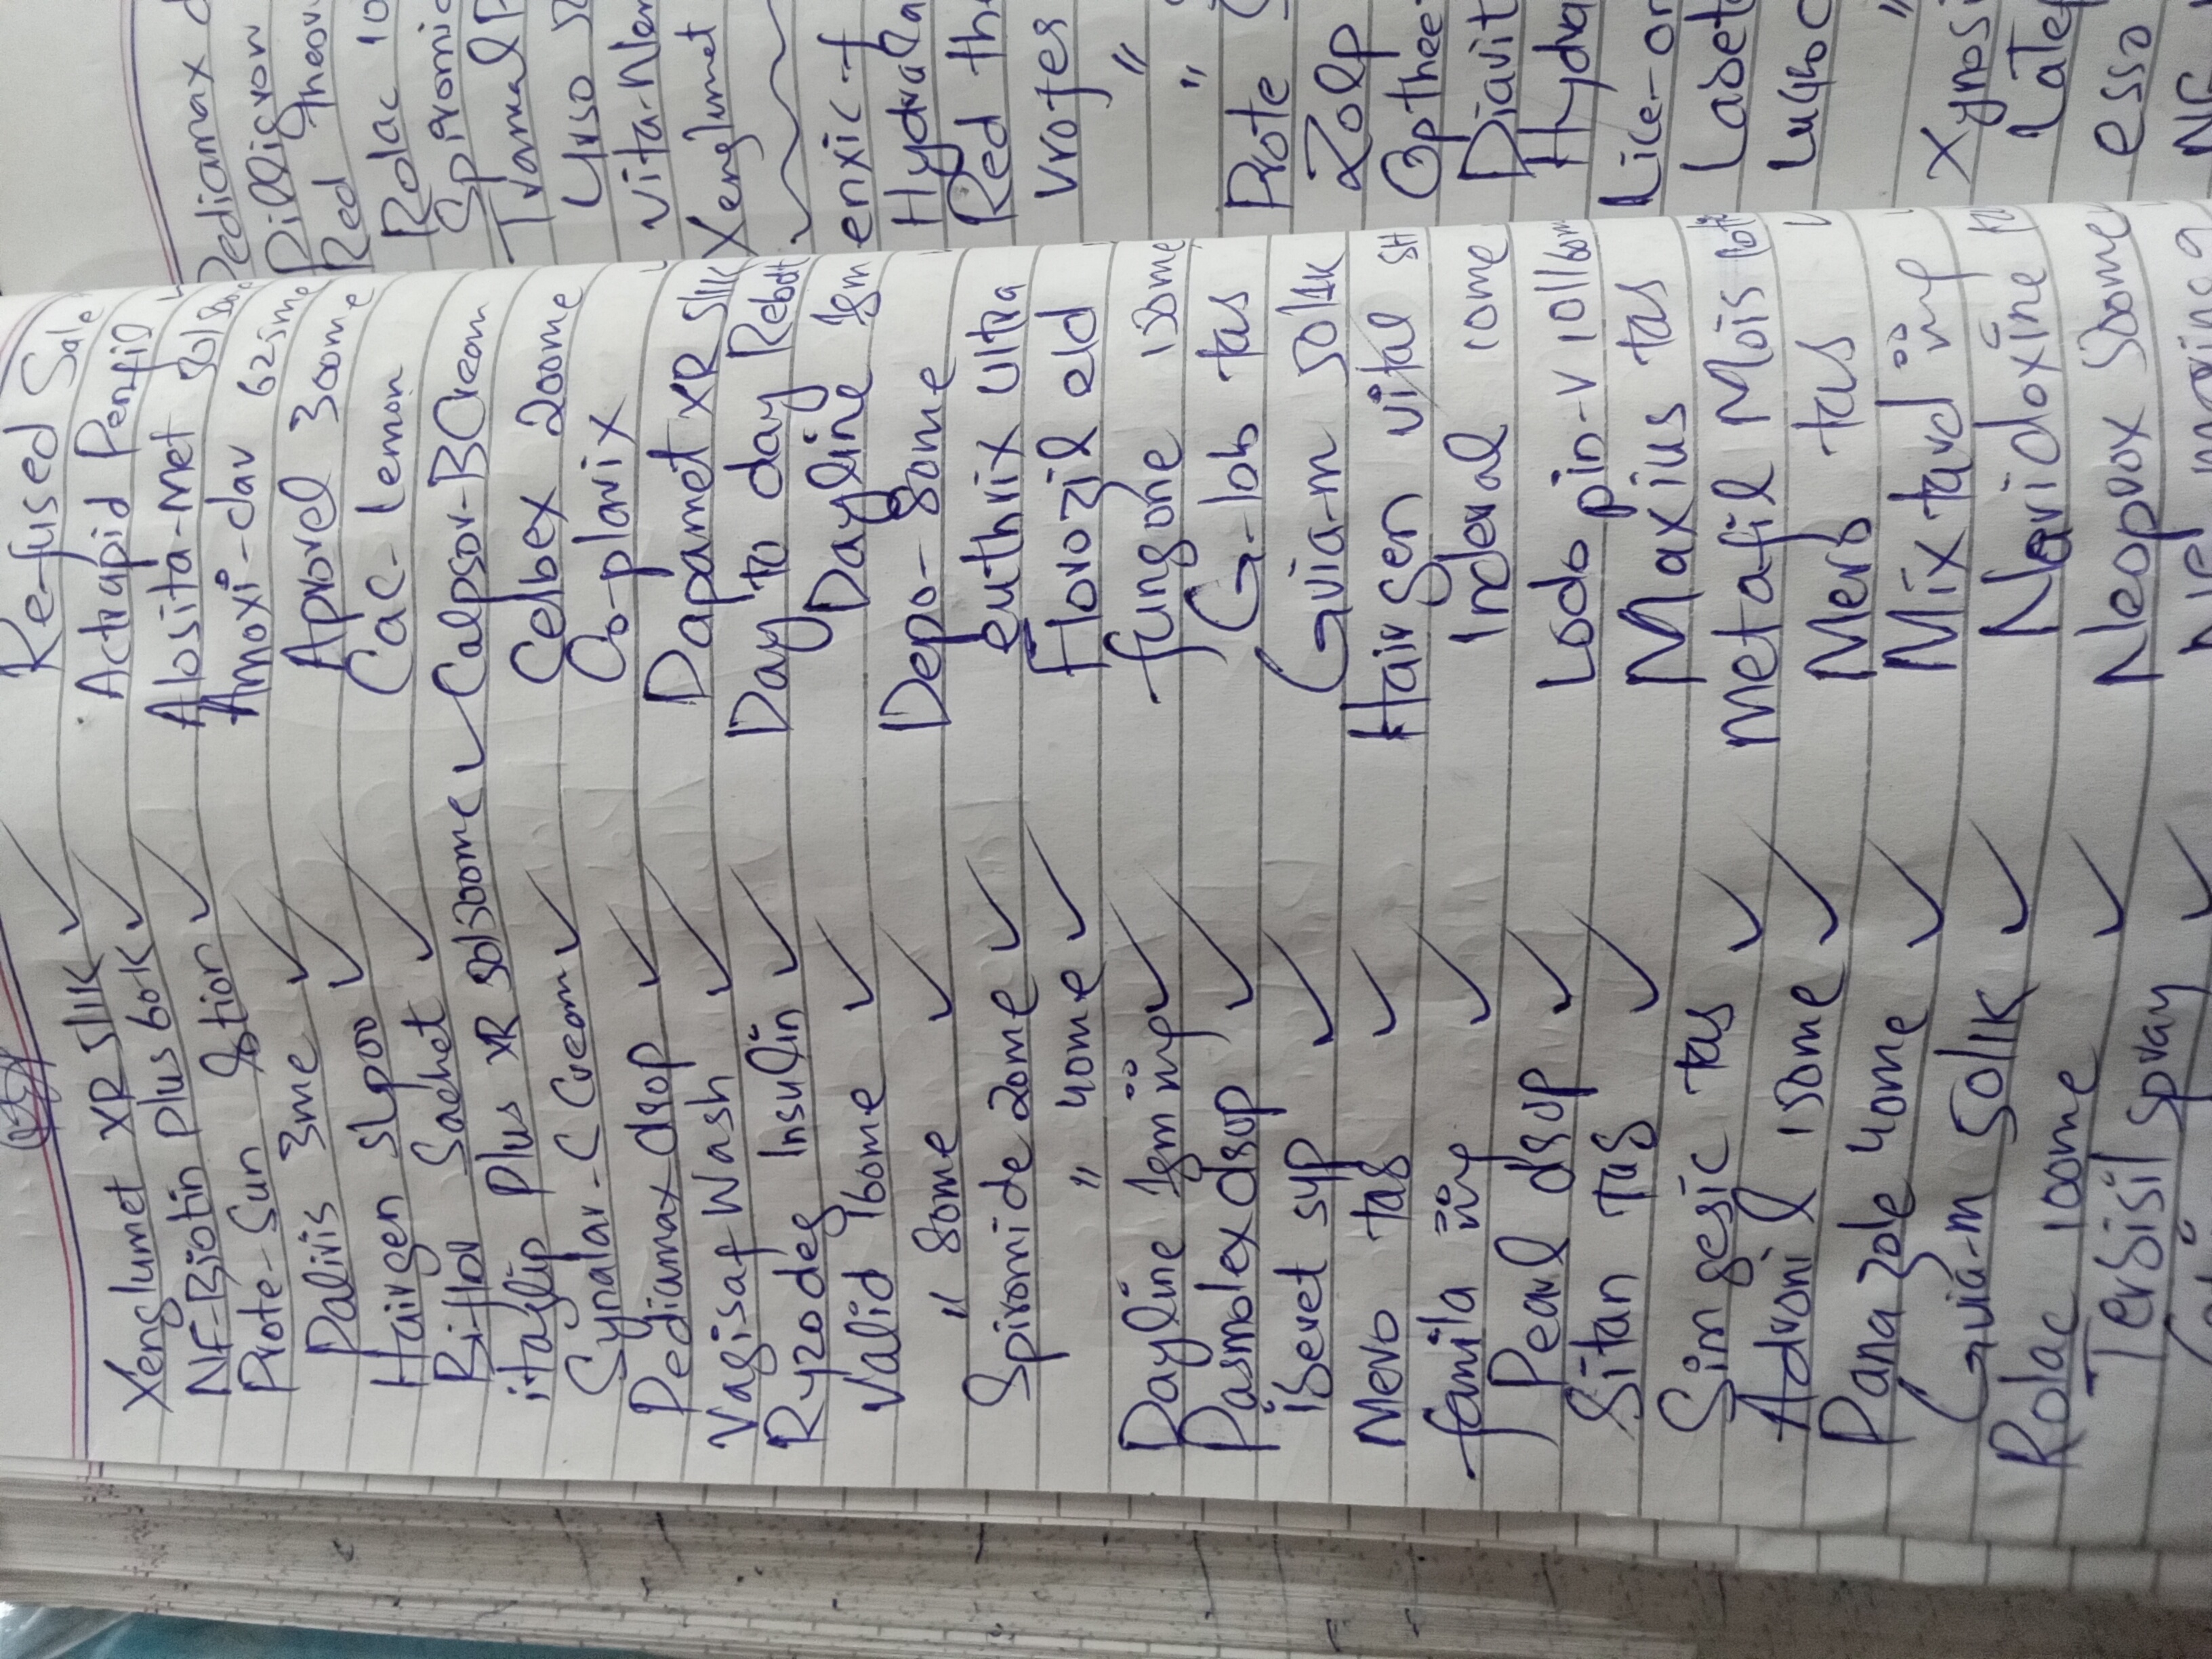 Xenglumet XR 5/1K
NF-Biotin Plus 60K
Prote-Sun Lotion
Palivis 3mg
Hairgen Shpoo
Biflor Sachet
itaglip Plus XR 50/500mg
Synalar-C Cream
Pediamax dsop
Vagisaf Wash
Ryzodeg Insulin
Valid 160mg
" 80mg
Spiromide 20mg
" 40mg
Dayline 1gm inj
Pasmolex dsop
isevet syp
Mevo tas
famila inj
Pearl dsop
Sitan Tas
Simgesic tas
Advonil 150mg
Panazole 40mg
Gvia-m 50/1K
Rolac 100mg
Tersisil Spray
Re-fused Sale
Actrapid Penfil
Alosita-Met
Amoxi-clav 625mg
Aprovel 300mg
Cac-lemon
Calpsor-B Cream
Celbex 200mg
Co-plavix
Dapamet XR 5/1K
Day to day
Dayline 1gm
Depo-80mg
euthrix ultra
Flovozil eld
fungone 150mg
G-lob tas
Gvia-m 50/1K
Hairgen vital Sh
Inderal 10mg
Lodopin-V 10/160m
Maxius tas
Metafil Mois loti
Merb tas
Mixtard inj
Navidoxine ta
Neoprox 500mg
Pediamax d
Pilligvon
Red theov
Rolac 10
Spiromic
Tramal P
Urso 50
Vita-Nen
Xenglumet
enxic-f
Hydrala
Red the
Vrotes
"
"
Prote S
Zolp
Opthee
Diavit
Hydra
Lice-or
Labeto
"
Xynosi
Latef
esso
NF